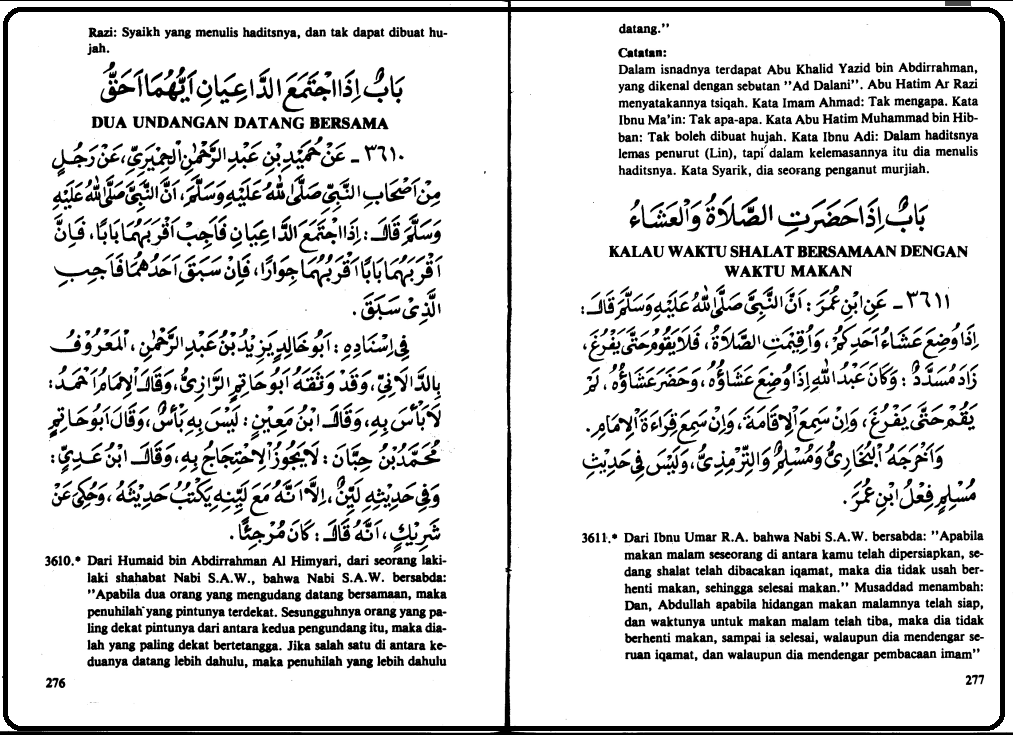 Razi: Syaikh yang menulis haditsnya, dan tak dapat dibuat hu-
jah.
بَابٌ إِذَا اجْتَمَعَ الدَّاعِيَانِ أَيُّهُمَا أَحَقُّ
DUA UNDANGAN DATANG BERSAMA
٣٦١٠ ـ عَنْ حُمَيْدِ بْنِ عَبْدِ الرَّحْمٰنِ الْحِمْيَرِيِّ، عَنْ رَجُلٍ
مِنْ أَصْحَابِ النَّبِيِّ صَلَّى اللهُ عَلَيْهِ وَسَلَّمَ، أَنَّ النَّبِيَّ صَلَّى اللهُ عَلَيْهِ
وَسَلَّمَ قَالَ : إِذَا اجْتَمَعَ الدَّاعِيَانِ فَأَجِبْ أَقْرَبَهُمَا بَابًا، فَإِنَّ
أَقْرَبَهُمَا بَابًا أَقْرَبُهُمَا جِوَارًا، فَإِنْ سَبَقَ أَحَدُهُمَا فَأَجِبِ
الَّذِى سَبَقَ .
فِى إِسْنَادِهِ : أَبُو خَالِدٍ يَزِيْدُ بْنُ عَبْدِ الرَّحْمٰنِ، الْمَعْرُوْفُ
بِالدَّالَانِيِّ، وَقَدْ وَثَّقَهُ أَبُو حَاتِمٍ الرَّازِيُّ، وَقَالَ الْإِمَامُ أَحْمَدُ :
لَا بَأْسَ بِهِ، وَقَالَ ابْنُ مَعِيْنٍ : لَيْسَ بِهِ بَأْسٌ، وَقَالَ أَبُو حَاتِمٍ
مُحَمَّدُ بْنُ حِبَّانَ : لَا يَجُوْزُ الْاِحْتِجَاجُ بِهِ، وَقَالَ ابْنُ عَدِيٍّ :
وَفِى حَدِيْثِهِ لِيْنٌ، إِلَّا أَنَّهُ مَعَ لِيْنِهِ يُكْتَبُ حَدِيْثُهُ، وَحُكِيَ عَنْ
شَرِيْكٍ، أَنَّهُ قَالَ : كَانَ مُرْجِئًا .
3610.* Dari Humaid bin Abdirrahman Al Himyari, dari seorang laki-
laki shahabat Nabi S.A.W., bahwa Nabi S.A.W. bersabda:
"Apabila dua orang yang mengudang datang bersamaan, maka
penuhilah yang pintunya terdekat. Sesungguhnya orang yang pa-
ling dekat pintunya dari antara kedua pengundang itu, maka dia-
lah yang paling dekat bertetangga. Jika salah satu di antara ke-
duanya datang lebih dahulu, maka penuhilah yang lebih dahulu
276
datang."
Catatan:
Dalam isnadnya terdapat Abu Khalid Yazid bin Abdirrahman,
yang dikenal dengan sebutan "Ad Dalani". Abu Hatim Ar Razi
menyatakannya tsiqah. Kata Imam Ahmad: Tak mengapa. Kata
Ibnu Ma'in: Tak apa-apa. Kata Abu Hatim Muhammad bin Hib-
ban: Tak boleh dibuat hujah. Kata Ibnu Adi: Dalam haditsnya
lemas penurut (Lin), tapi dalam kelemasannya itu dia menulis
haditsnya. Kata Syarik, dia seorang penganut murjiah.
بَابٌ إِذَا حَضَرَتِ الصَّلَاةُ وَالْعَشَاءُ
KALAU WAKTU SHALAT BERSAMAAN DENGAN
WAKTU MAKAN
٣٦١١ ـ عَنِ ابْنِ عُمَرَ : أَنَّ النَّبِيَّ صَلَّى اللهُ عَلَيْهِ وَسَلَّمَ قَالَ :
إِذَا وُضِعَ عَشَاءُ أَحَدِكُمْ، وَأُقِيْمَتِ الصَّلَاةُ، فَلَا يَقُوْمُ حَتَّى يَفْرُغَ،
زَادَ مُسَدَّدٌ : وَكَانَ عَبْدُ اللهِ إِذَا وُضِعَ عَشَاؤُهُ، وَحَضَرَ عَشَاؤُهُ، لَمْ
يَقُمْ حَتَّى يَفْرُغَ، وَإِنْ سَمِعَ الْإِقَامَةَ، وَإِنْ سَمِعَ قِرَاءَةَ الْإِمَامِ.
وَأَخْرَجَهُ الْبُخَارِيُّ وَمُسْلِمٌ وَالتِّرْمِذِيُّ، وَلَيْسَ فِى حَدِيْثِ
مُسْلِمٍ فِعْلُ ابْنِ عُمَرَ.
3611.* Dari Ibnu Umar R.A. bahwa Nabi S.A.W. bersabda: "Apabila
makan malam seseorang di antara kamu telah dipersiapkan, se-
dang shalat telah dibacakan iqamat, maka dia tidak usah ber-
henti makan, sehingga selesai makan." Musaddad menambah:
Dan, Abdullah apabila hidangan makan malamnya telah siap,
dan waktunya untuk makan malam telah tiba, maka dia tidak
berhenti makan, sampai ia selesai, walaupun dia mendengar se-
ruan iqamat, dan walaupun dia mendengar pembacaan imam"
277